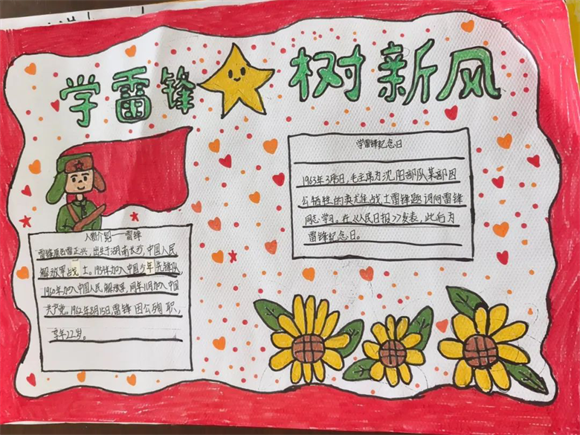 学雷锋 树新风
学雷锋纪念日
1963年3月5日,毛主席为沈阳部队某部因
公牺牲的共产主义战士雷锋题词向雷锋
同志学习,在《人民日报》发表,此后为
雷锋纪念日。
人物介绍——雷锋
雷锋原名雷正兴,出生于湖南长沙,中国人民
解放军战士。1954年加入中国少年先锋队
1960年加入中国人民解放军,同年11月加入中国
共产党,1962年8月15日雷锋因公殉职,
享年22岁。